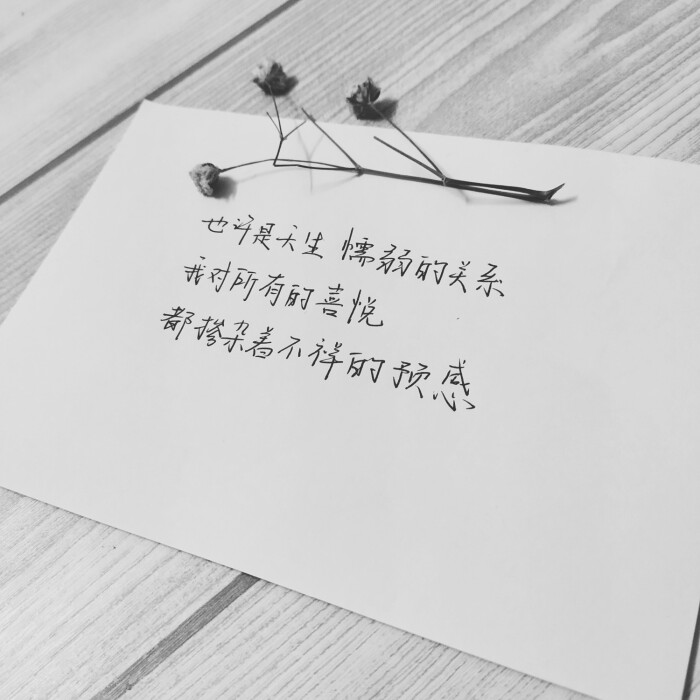 也许是天生 懦弱的关系
我对所有的喜悦
都掺杂着不祥的预感